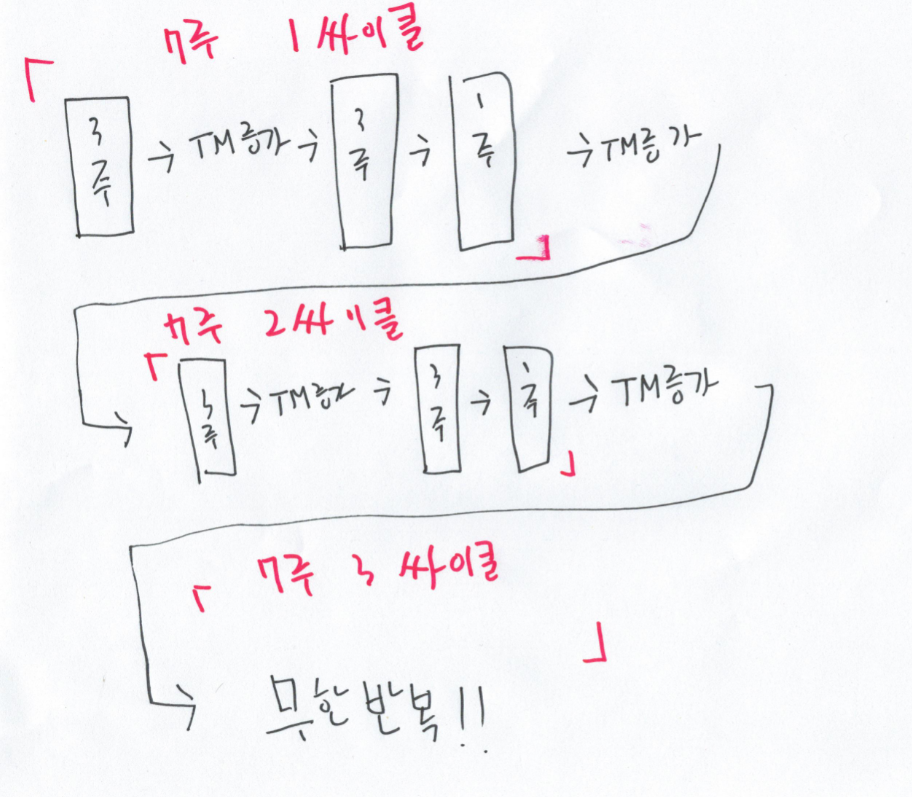 「 7주 1싸이클
3주 → TM증가 → 3주 → 1주 」 → TM증가
7주 2싸이클
「 3주 → TM증가 → 3주 → 1주 」 → TM증가
「 7주 3싸이클 」
무한반복!!